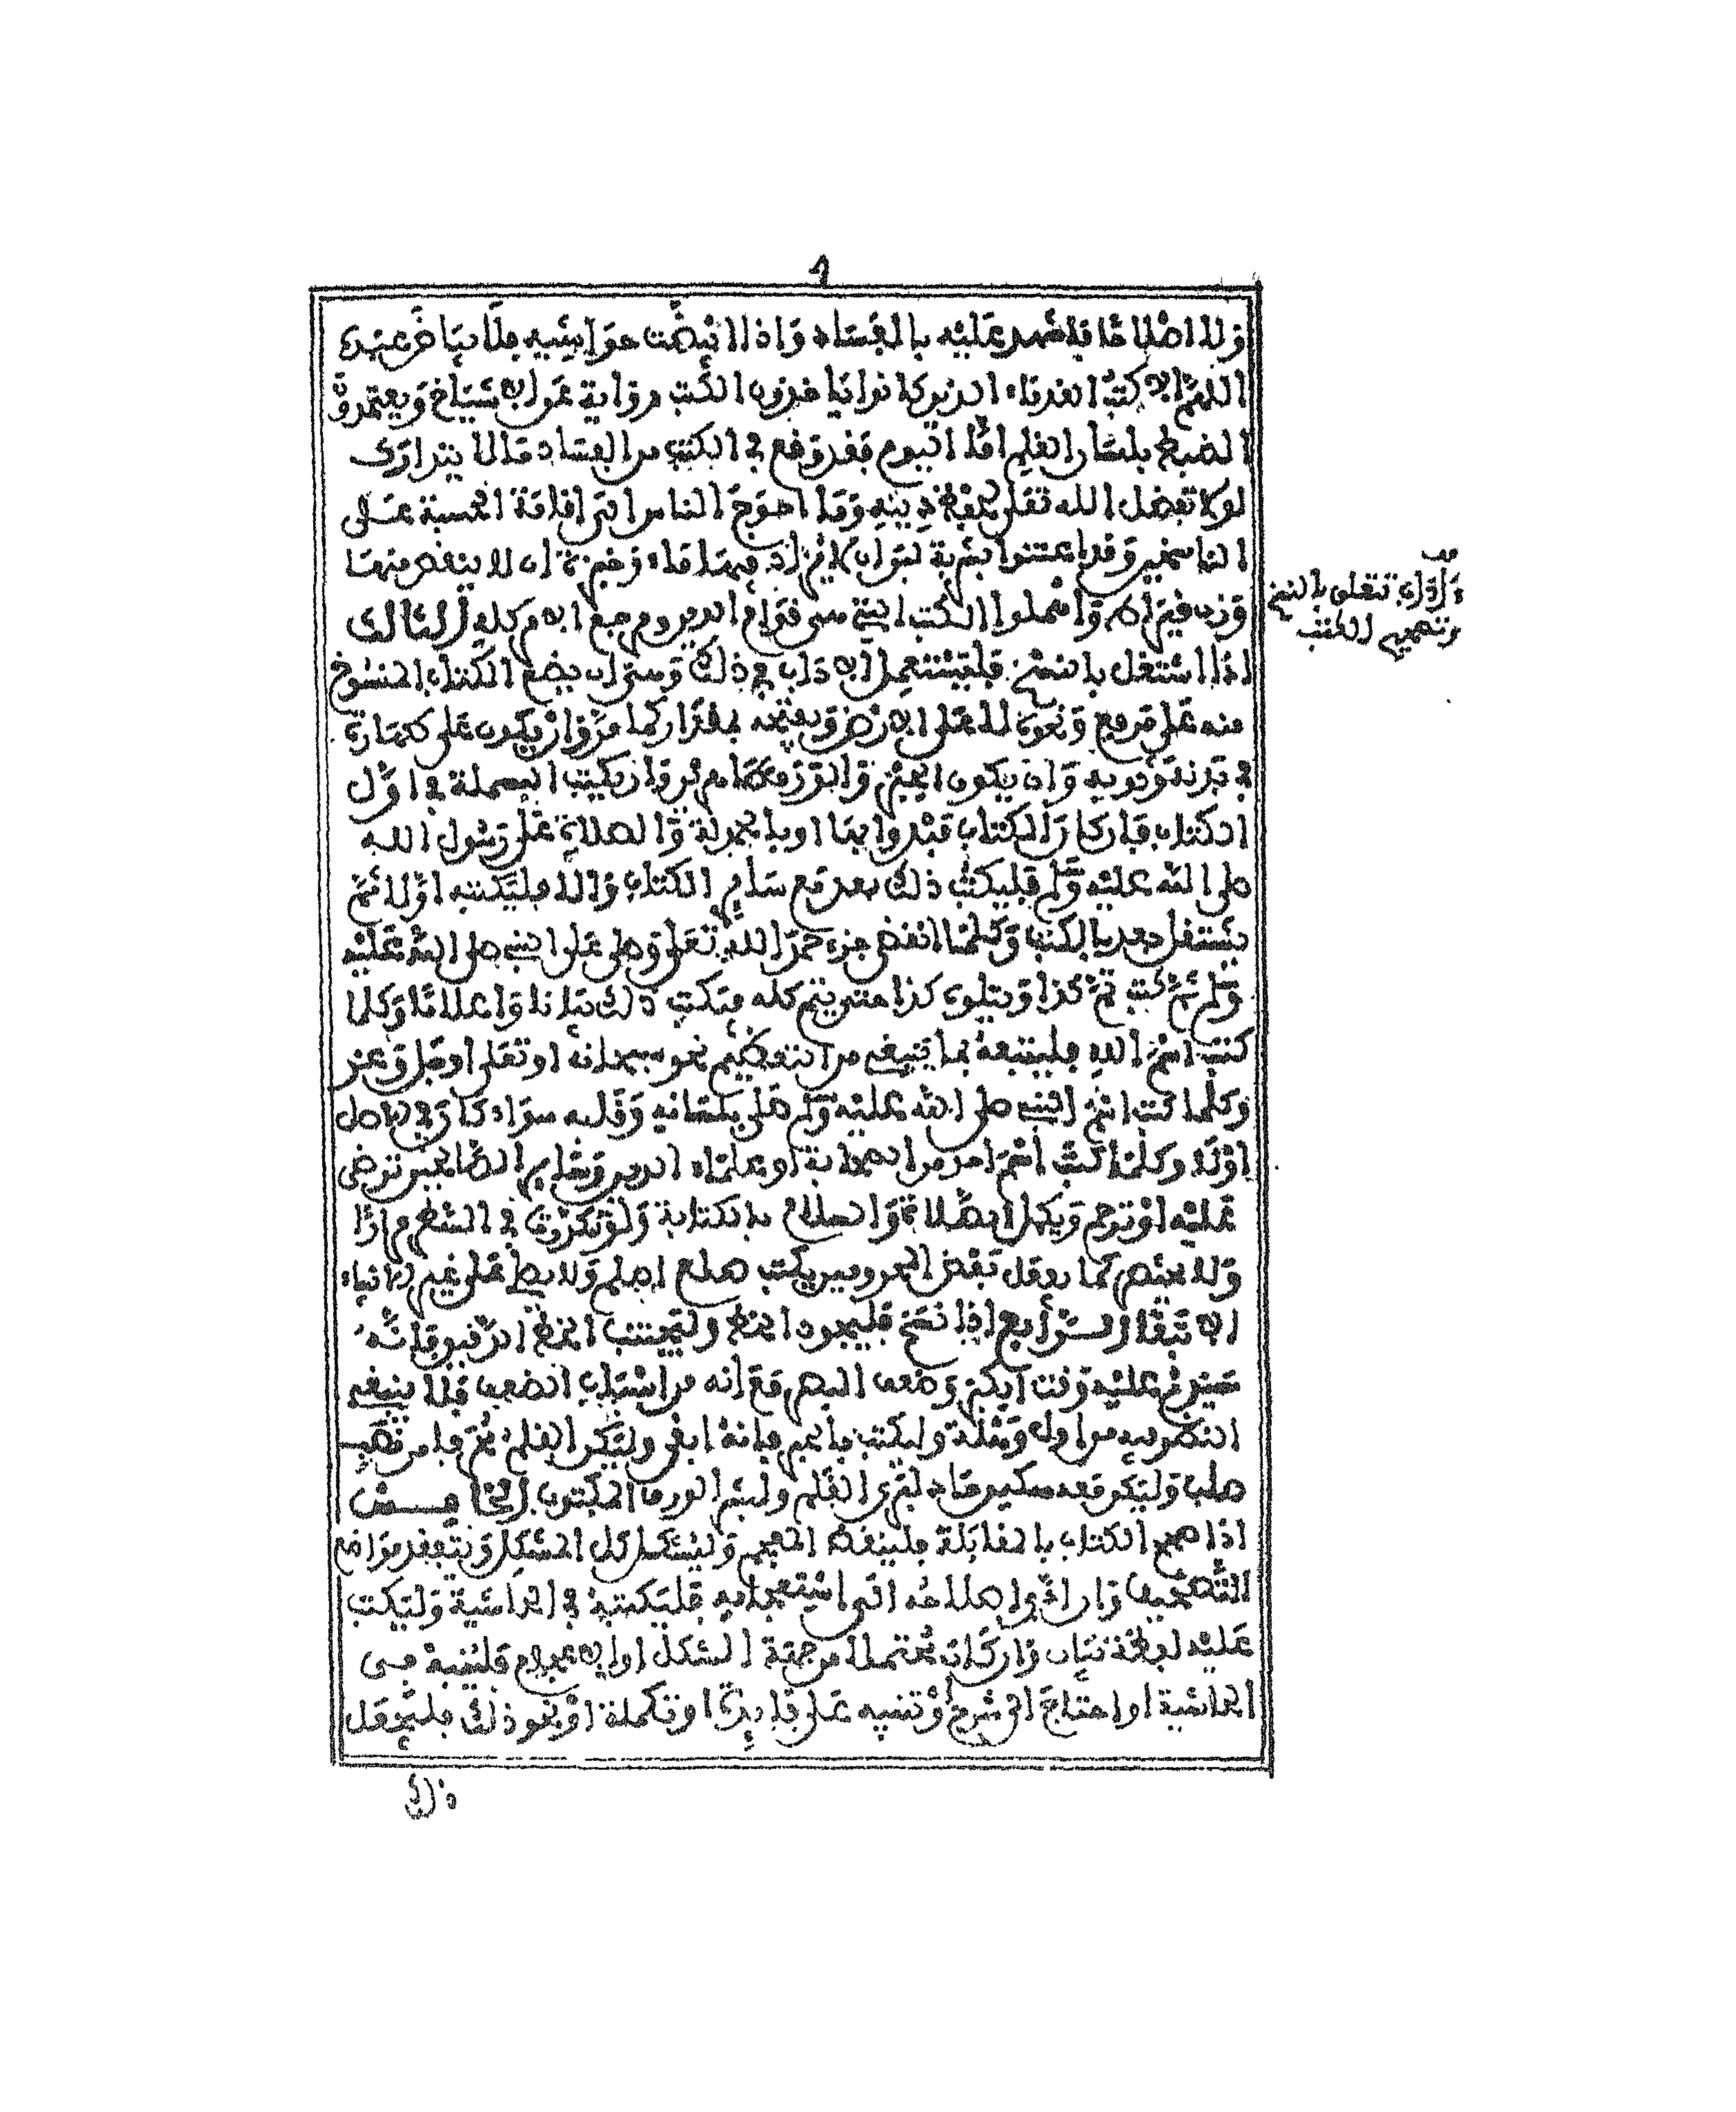 ولا اصلاحا فاشهد عليه بالفساد واذا ابيضت حواشيه فلا بياض عندى
اللهم الا كتب القدماء الذين كانوا ياخذون الكتب رواية عن الاشياخ ويعتمدون
الضبط بلسان القلم اما اليوم فقد وقع في الكتب من الفساد ما لا يتدارك
لولا تفضل الله تعلى بحفظ دينه وما احوج الناس الى اقامة الحسبة على
الناسخين وقد اعتنوا بشربة لبوان زاد فيها ماء وخبزة ان لا ينقص منها
وزن قيراط واهملوا الكتب التي هي قوام الدين ومرجع الامر كله الثالث
اذا اشتغل بالنسخ فليستعمل الاداب في ذلك وهي ان يضع الكتاب المنسوخ
منه على مرفع ونحوه لا على الارض ويفتحه بمقدار كما مر وان يكون على طهارة
في بدنه وثوبه وان يكون الحبر والورق طاهرين وان يكتب البسملة في اول
الكتاب فان كان الكتاب مبدوا بها او بالحمدلة والصلاة على رسول الله
صلى الله عليه وسلم فليكتب ذلك بعد مع سائر الكتاب والا فليكتبه اولا ثم
يشتغل بعد بالكتب وكلما انقضى جزء حمد الله تعلى وصلى على النبي صلى الله عليه
وسلم ثم كتب تم كذا ويتلوه كذا حتى يتم كله فيكتب ذلك بيانا واعلاما وكلما
كتب اسم الله فليتبعه بما ينبغي من التعظيم نحو سبحانه او تعلى او جل وعز
وكلما كتب اسم النبي صلى الله عليه وسلم صلى بلسانه وقلبه سواء كان في الاصل
اولا وكلما كتب اسم احد من الصحابة او علماء الدين وسائر الصالحين ترضى
عليه او ترحم ويكمل الصلاة والسلام بالكتابة ولو تكررت في السطر مرارا
ولا يختصر كما يفعل بعض المحرومين يكتب صلع اصلم ولا يصلي على غير الانبياء
الا تبعا الرابع اذا نسخ فليجود الخط وليجتنب الخط الدقيق فانه
سيندم عليه وقت الكبر وضعف البصر مع انه من اسباب الضعف فلا ينبغي
النظر فيه من اول وهلة وليكتب بالحبر فانه ابقى وليكن القلم من قصب
صلب وليكن معه سكين حاد لبري القلم ولبشر الورق المكتوب الخامس
اذا صحح الكتاب بالمقابلة فلينقط المعجم وليشكل كل المشكل ويتفقد مواضع
التصحيف وان راى اصلاحه فليكتبه في الحاشية وليكتب
عليه لفظة بيان وان كان محتملا من جهة الشكل او الاعجام فلينبه في
الحاشية او احتاج الى شرح او تنبيه على فائدة او تكملة او نحو ذلك فليجعل
ءاداب تتعلق بالنسخ
وتصحيح الكتب
ذلك